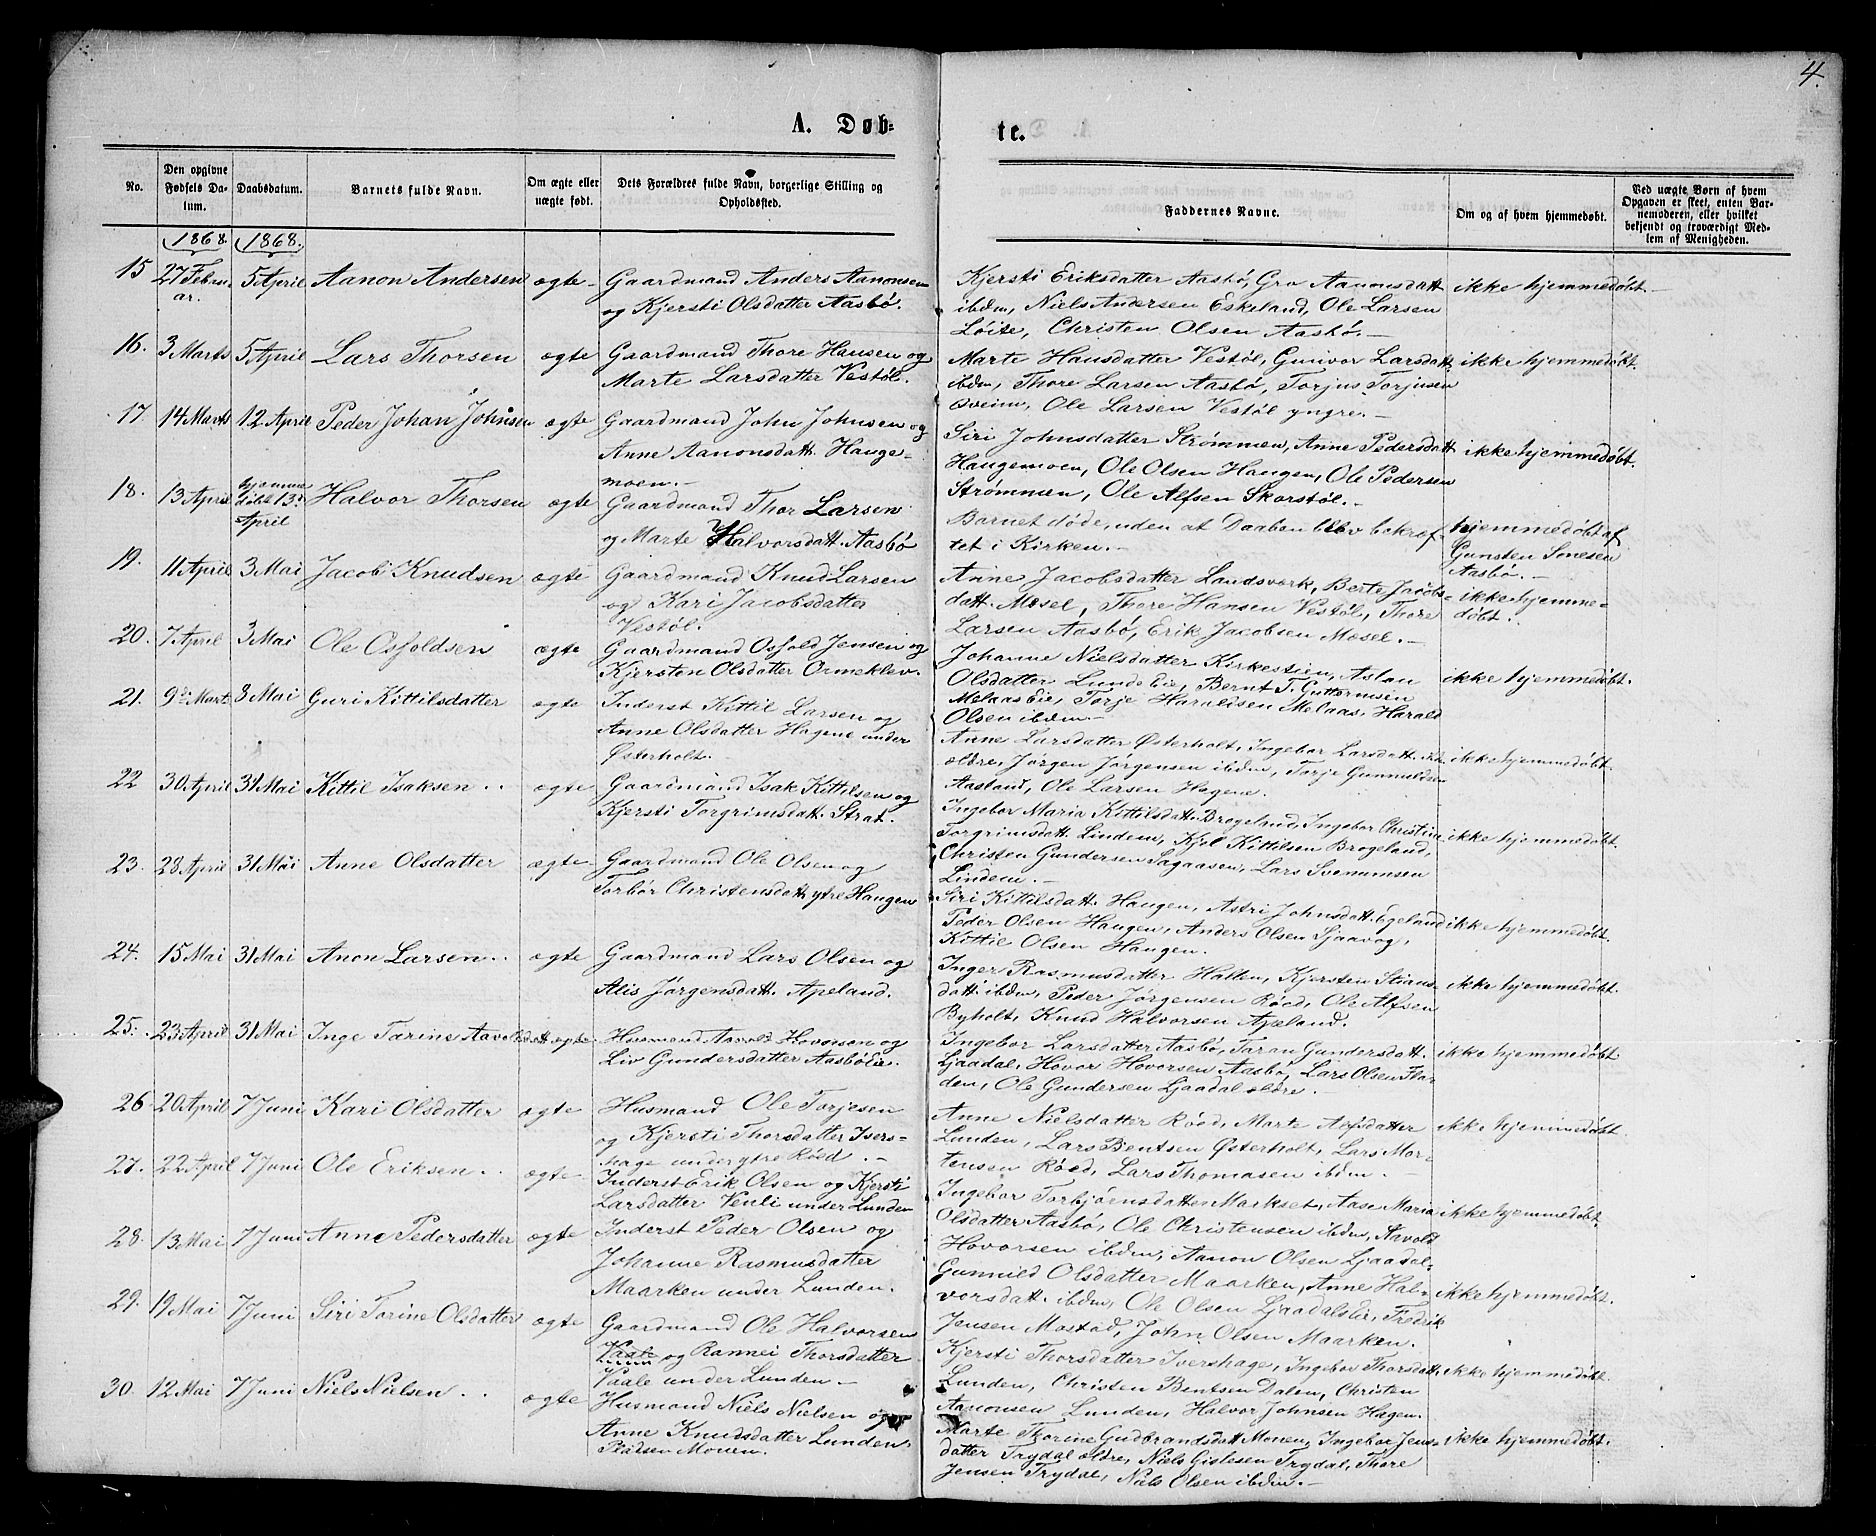 4.
A. Døbte.
No.
Den opgivne Fødsels Datum.
Daabsdatum.
Barnets fulde Navn.
Om ægte eller uægte født.
Dets Forældres fulde Navn, borgerlige Stilling og Opholdssted.
Faddernes Navne.
Om og af hvem hjemmedøbt.
Ved uægte Børn af hvem Opgaven er skeet, enten Barnemoderen, eller hvilket bekjendt og troværdigt Medlem af Menigheden.
1868. 1868.
15 27 Febru- 5 April Aanon Andersen ægte Gaardmand Anders Aanonsen
ar. og Kjersti Olsdatter Aasbø.
Kjersti Eriksdatter Aasbø, Gro Aanonsdatt ikke hjemmedøbt.
ibdm, Niels Andersen Eskeland, Ole Larsen
Løite, Christen Olsen Aasbø.
16. 3 Marts 5 April Lars Thorsen ægte Gaardmand Thore Hansen og
Marte Larsdatter Vestøl.
Marte Hansdatter Vestøl, Gunvor Larsdatt. ikke hjemmedøbt.
ibdm, Thore Larsen Aasbø, Torjus Torjusen
Sveim, Ole Larsen Vestøl yngre.
17. 14 Marts 12 April Peder Johan Johnsen ægte Gaardmand John Johnsen og
Anne Aanonsdatt. Hauge-
moen.
Siri Johnsdatter Strømmen, Anne Pedersdatt ikke hjemmedøbt.
Haugemoen, Ole Olsen Haugen, Ole Pedersen
Strømmen, Ole Alfsen Skorstøl.
18. 13 April hjemme døbt 13. April Halvor Thorsen ægte Gaardmand Thor Larsen
og Marte Halvorsdatt. Aasbø
Barnet døde, uden at Daaben blev bekræf- hjemmedøbt af
tet i Kirken. Gunsten Sonesen
Aasbø.
19. 11 April 3 Mai Jacob Knudsen ægte Gaardmand Knud Larsen
og Kari Jacobsdatter
Vestøl.
Anne Jacobsdatter Landsverk, Berte Jacobs- ikke hjemme-
datt. Mosel, Thore Hansen Vestøl, Thore døbt.
Larsen Aasbø, Erik Jacobsen Mosel.
20. 7 April 3 Mai Ole Osfoldsen ægte Gaardmand Osfold Jensen og
Kjersten Olsdatter Ormeklev.
Johanne Nielsdatter Kirkestien, Aslau
Olsdatter Lunds Eie, Bernt T. Guttormsen ikke hjemmedøbt.
Melaas Eie, Torje Haraldsen Melaas, Harald
Olsen ibdm.
21. 9de Marts 3 Mai Guri Kittilsdatter ægte Inderst Kittil Larsen og
Anne Olsdatter Hagene under
Østerholt.
Anne Larsdatter Østerholt, Ingebor Larsdatt. ibd. ikke hjemmedøbt.
ældre, Jørgen Jørgensen ibdm, Torje Gunnuldsen
Aasland, Ole Larsen Hagene.
22 30 April 31 Mai Kittil Isaksen ægte Gaardmand Isak Kittilsen og
Kjersti Torgrimsdatt. Strat.
Ingebor Maria Kittilsdatt. Brogeland, Ingebor Christine ikke hjemmedøbt.
Torgrimsdatt. Lindem, Kjel Kittilsen Brogeland,
Christen Gundersen Sagaasen, Lars Svenumsen
Lindem.
23. 28 April 31 Mai Anne Olsdatter ægte Gaardmand Ole Olsen og
Torbør Christensdatt. ytre Haugen
Siri Kittilsdatt. Haugen, Astri Johnsdatt. Egeland ikke hjemmedøbt.
Peder Olsen Haugen, Anders Olsen Ljaavog,
Kittil Olsen Haugen.
24. 15 Mai 31 Mai Anon Larsen ægte Gaardmand Lars Olsen og
Alis Jørgensdatt. Apeland.
Inger Rasmusdatter Holten, Kjersten Stians- ikke hjemmedøbt.
datt. ibdm, Peder Jørgensen Røed, Ole Alfsen
Byholt, Knud Halvorsen Apeland.
25. 23 April 31 Mai Inge Tarine Aavoldsdatt. ægte Husmand Aavold Hovorsen og
Liv Gundersdatter Aasbø Eie.
Ingebor Larsdatter Aasbø, Taran Gundersdatt. ikke hjemmedøbt
Ljaadal, Hovor Hovorsen Aasbø, Lars Olsen Fla-
den, Ole Gundersen Ljaadal ældre.
26 20 April 7 Juni Kari Olsdatter ægte Husmand Ole Torjesen
og Kjersti Thorsdatter Ivers-
hage under ytre Røed.
Anne Nielsdatter Røed, Marte Alfsdatter ikke hjemmedøbt.
Lunden, Lars Bentsen Østerholt, Lars Mor-
tensen Røed, Lars Thomasen ibdm.
27. 22 April 7 Juni Ole Eriksen ægte Inderst Erik Olsen og Kjersti
Larsdatter Venli under Lunden
Ingebor Torbjørnsdatter Markset, Aase Maria ikke hjemmedøbt.
Olsdatter Aasbø, Ole Christensen ibdm, Aavold
Hovorsen ibdm, Aanon Olsen Ljaadal.
28. 13 Mai 7 Juni Anne Pedersdatter ægte Inderst Peder Olsen og
Johanne Rasmusdatter
Maarken under Lunden.
Gunnild Olsdatter Maarken, Anne Hal- ikke hjemmedøbt.
vorsdatt. ibdm, Ole Olsen Ljaadals Eie, Fredrik
Jensen Mostad, John Olsen Maarken.
29. 19 Mai 7 Juni Siri Torine Olsdatter ægte Gaardmand Ole Halvorsen
Vaale og Rannei Thorsdatter
Vaale under Lunden
Kjersti Thorsdatter Ivershage, Ingebor Thorsdatt. ikke hjemmedøbt.
Lunden, Christen Bentsen Dalen, Christen
Aanonsen Lunden, Halvor Johnsen Hagen.
30. 12 Mai 7 Juni Niels Nielsen ægte Husmand Niels Nielsen og
Anne Knudsdatter Lunden
Monen.
Marte Thorine Gudbrandsdatt. Monen, Ingebor Jens- ikke hjemmedøbt.
datter Trydal ældre, Niels Gislesen Trydal, Thore
Jensen Trydal, Niels Olsen ibdm.